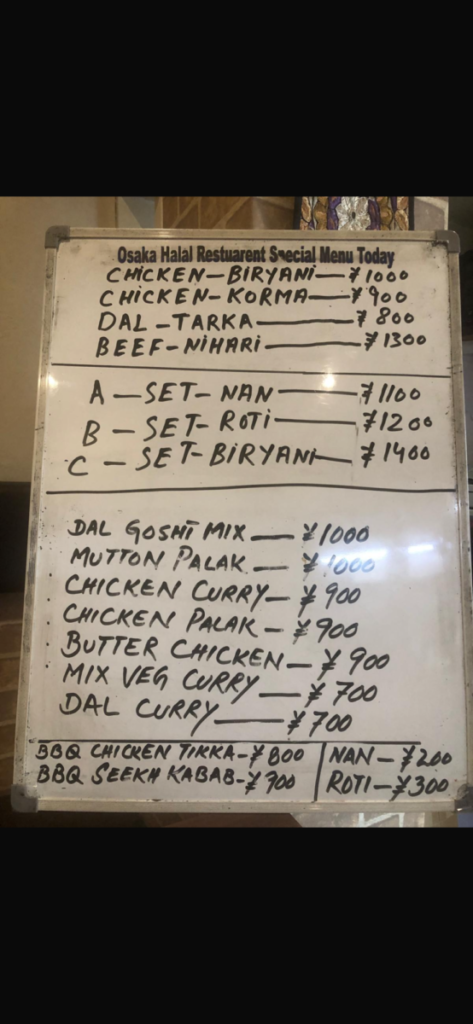 Osaka Halal Restuarent Special Menu Today
CHICKEN-BIRYANI-¥1000
CHICKEN-KORMA-¥900
DAL-TARKA-¥800
BEEF-NIHARI-¥1300
A-SET-NAN-¥1100
B-SET-ROTI-¥1200
C-SET-BIRYANI-¥1400
DAL GOSHT MIX-¥1000
MUTTON PALAK-¥1000
CHICKEN CURRY-¥900
CHICKEN PALAK-¥900
BUTTER CHICKEN-¥900
MIX VEG CURRY-¥700
DAL CURRY-¥700
BBQ CHICKEN TIKKA-¥800
BBQ SEEKH KABAB-¥700
NAN-¥200
ROTI-¥300